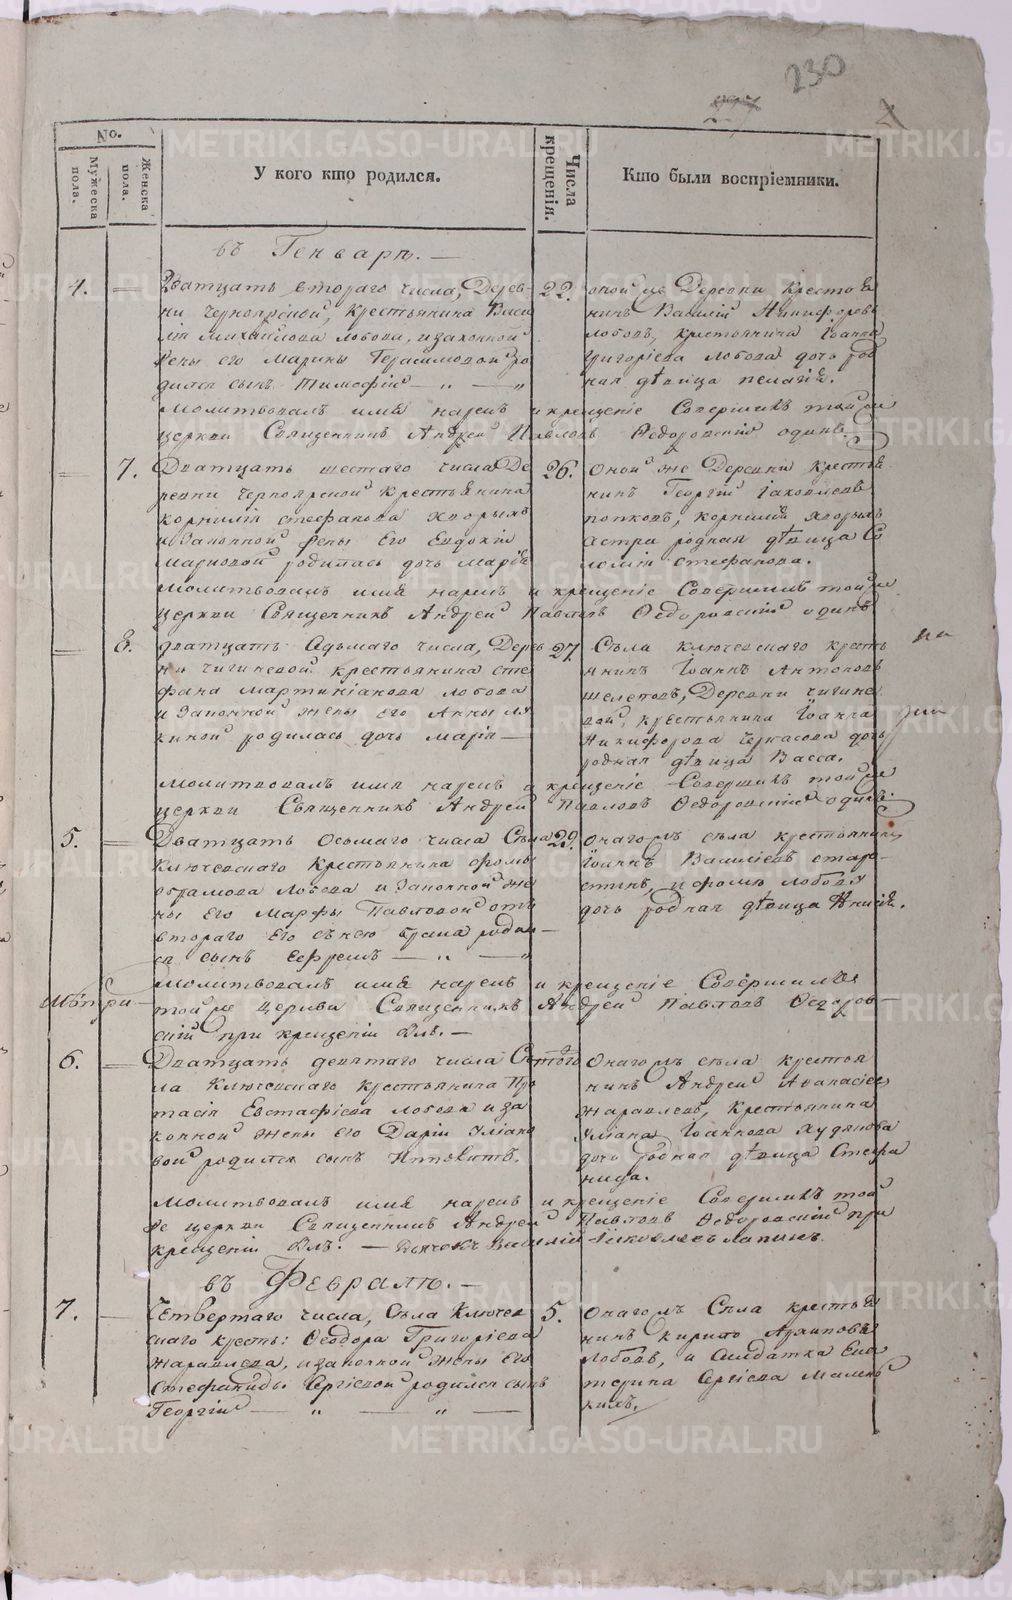 230
No.
Мужеска пола.
Женска пола.
У кого кто родился.
Числа крещенія.
Кто были воспріемники.
въ Генварѣ.
4. Дватцать втораго числа, Дерев-
ни Черноярской, крестьянина Васи
лія Михайлова Лобова, и законной
жены его Марины Герасимовой ро
дился сынъ Тимофей
22. оной жъ Деревни кресто я
нинъ Василій Никифоровъ
Лобовъ, крестьянина Іоанна
Григоріева Лобова дочь род
ная дѣвица Пелагія.
Молитвовалъ имя нарекъ и крещеніе Совершилъ той же
церкви Священникъ Андрей Павловъ Федоровскій одинъ.
7. Дватцать шестаго числа Де
ревни Черноярской крестьянина
Корнилія Стефанова Хворыхъ
и Законной жены Его Евдокіи
Марковой родилась дочь Марія
26. Оной же Деревни кресть я
нинъ Георгій Іаковлевъ
Попковъ, Корнилія Хворыхъ
сестра родная дѣвица Со
ломія Стефанова.
Молитвовалъ имя нарекъ и крещеніе Совершилъ той же
церкви Священникъ Андрей Павловъ Федоровскій одинъ
8. дватцать Седьмаго числа, Дерев
ни Чигиневой крестьянина Сте
фана Мартиніанова Лобова
и Законной жены Его Анны
родилась дочь Марія
27. Села Ключевскаго кресть
янинъ Іоаннъ Антоновъ
Шелеповъ, Деревни Чигине
вой, крестьянина Іоанна
Никифорова Черкасова дочь
родная дѣвица Васса.
Молитвовалъ имя нарекъ и крещеніе Совершилъ той же
церкви Священникъ Андрей Павловъ Федоровскій одинъ.
5. Дватцать Осьмаго числа Села
Ключевскаго Крестьянина Фомы
Абрамова Лобова и Законной же
ны Его Марфы Павловой отъ
втораго Его съ нею брака родил
ся сынъ Ефремъ
29. Онагожъ села крестьянинъ
Іоаннъ Василіевъ
и Фомы Лобова
дочь родная дѣвица Анисія.
Молитвовалъ имя нарекъ и крещеніе Совершилъ
той же церкви Священникъ Андрей Павловъ Федоров-
скій при крещеніи былъ.
6. Дватцать девятаго числа Се
ла Ключевскаго крестьянина Про
тасія Евстафіева Лобова и за
конной жены Его Даріи Уліано
вой родился сынъ Ипполитъ.
Онагожъ села крестья
нинъ Андрей Аѳанасіевъ
Жаравлевъ, Крестьянина
Уліана Іоаннова Худякова
дочь родная дѣвица Стефа
нида.
Молитвовалъ имя нарекъ и крещеніе Совершилъ той
же церкви Священникъ Андрей Павловъ Федоровскій при
крещеніи былъ. — Дьячекъ Василій Іаковлевъ Лапинъ.
въ Февралѣ.
7. Четвертаго числа, Села Ключев
скаго кресть: Феодора Григоріева
Жаравлева, и законной жены Его
Стефаниды Сергіевой родился сынъ
Георгій
5. Онагожъ Села крестья
нинъ Кирило Архиповъ
Лобовъ, и Салдатка Ека
терина Сергіева